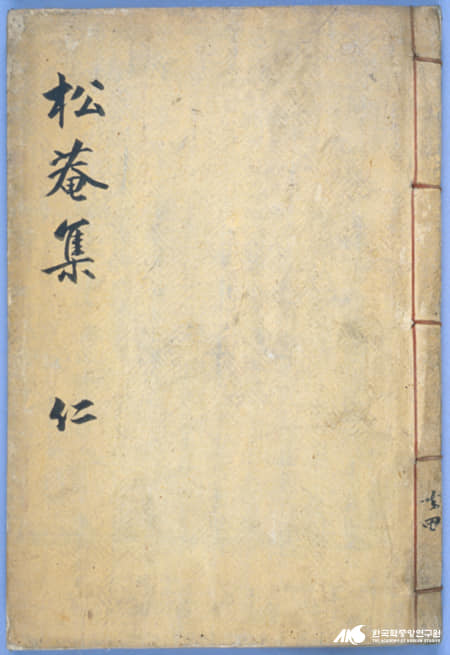 松菴集 仁
共四
한국학중앙연구원
THE ACADEMY OF KOREAN STUDIES